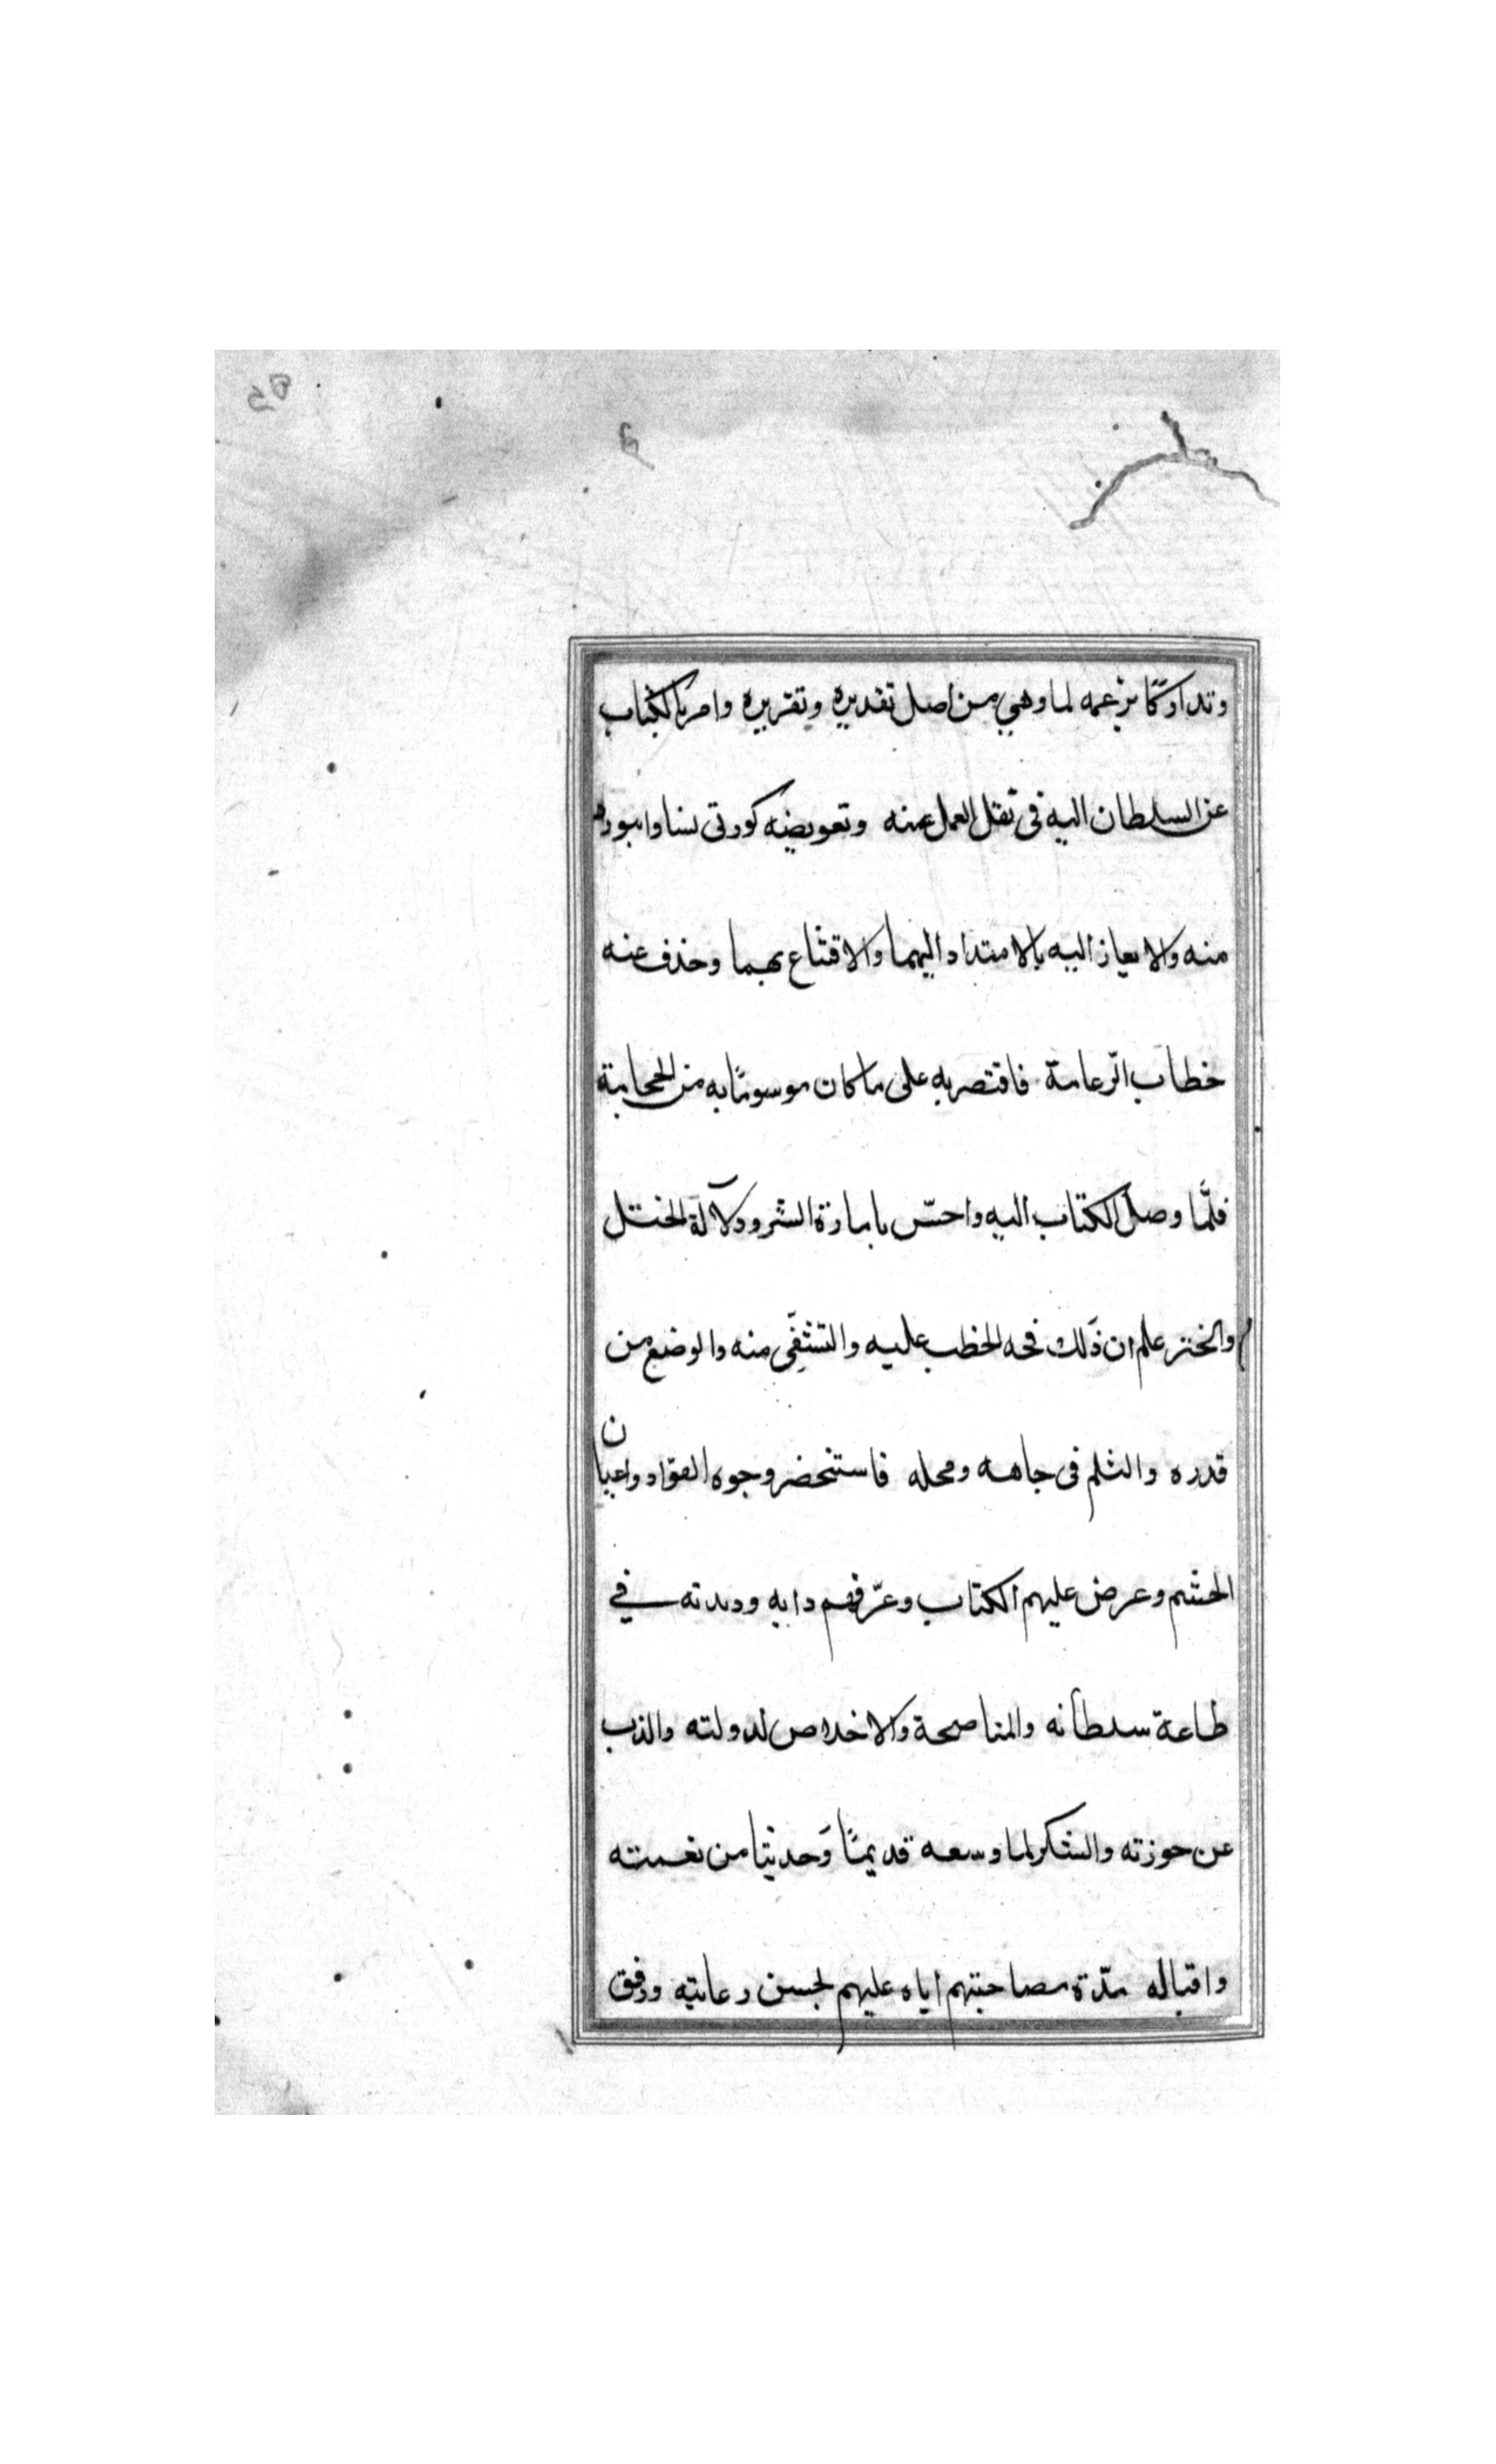 وتداركًا بزعمه لما وهي من اصل تقديره وتقريره وامر بالكتاب
عن السلطان اليه في نقل العمل عنه وتعويضه كورتي نسا وابيورد
منه والايعاز اليه بالامتداد اليهما والاقتناع بهما وحذف عنه
خطاب الزعامة فاقتصر به على ما كان موسومًا به من الحجابة
فلمَّا وصل الكتاب اليه واحسّ بامارة الشر ودلآلة الختل
والختر علم ان ذَلك الخطب عليه والتشفّي منه والوضع من
قدره والثلم في جاهه ومحله فاستحضر وجوه القواد واعيان
الحشم وعرض عليهم الكتاب وعرّفهم دابه وديدنه في
طاعة سلطانه والمناصحة والاخلاص لدولته والذب
عن حوزته والشكر لما وسعه قديمًا وَحديثا من نعمته
واقباله مدّة مصاحبتهم اياه عليهم بحسن رعايته ورفق